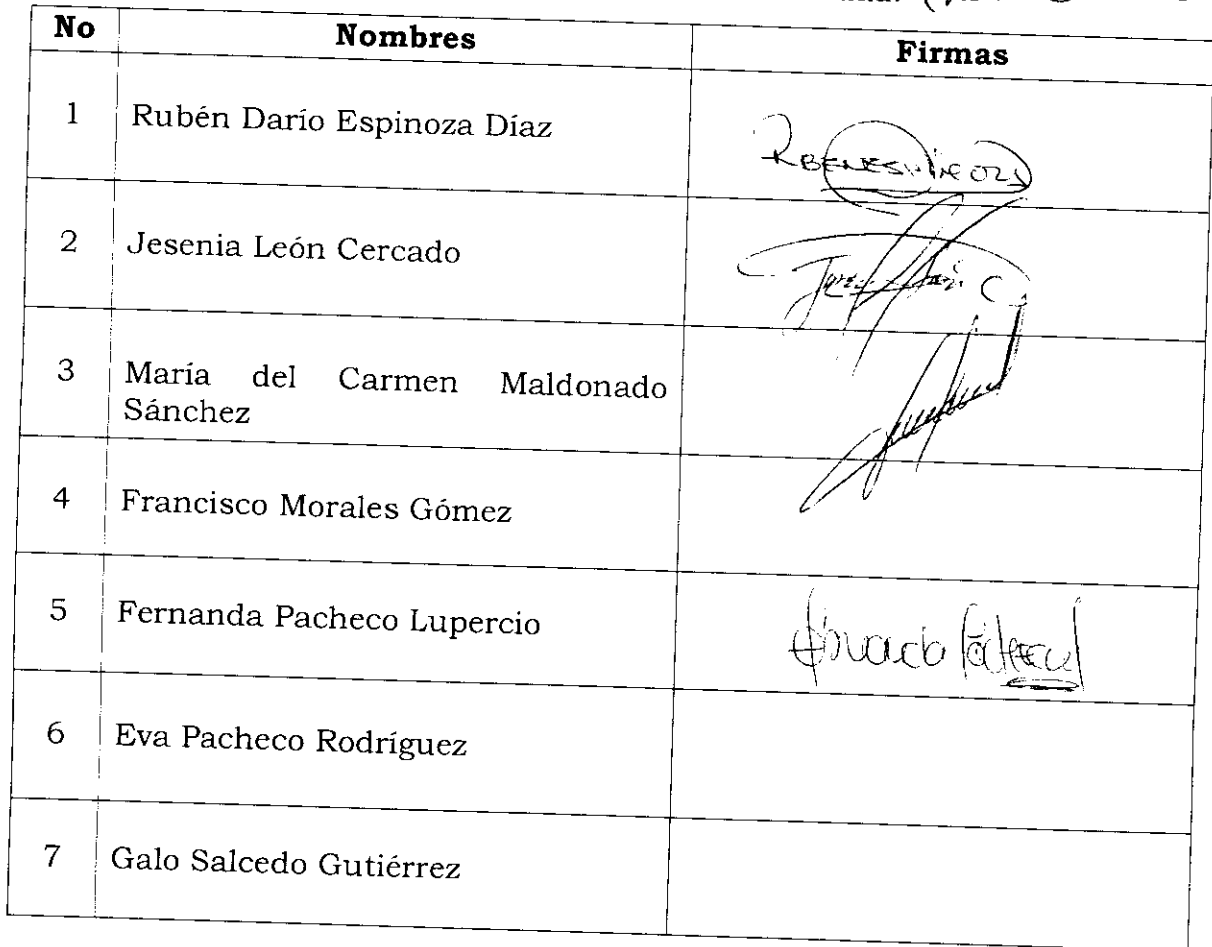 No Nombres Firmas
1 Rubén Darío Espinoza Díaz
2 Jesenia León Cercado
3 María del Carmen Maldonado
Sánchez
4 Francisco Morales Gómez
5 Fernanda Pacheco Lupercio
6 Eva Pacheco Rodríguez
7 Galo Salcedo Gutiérrez